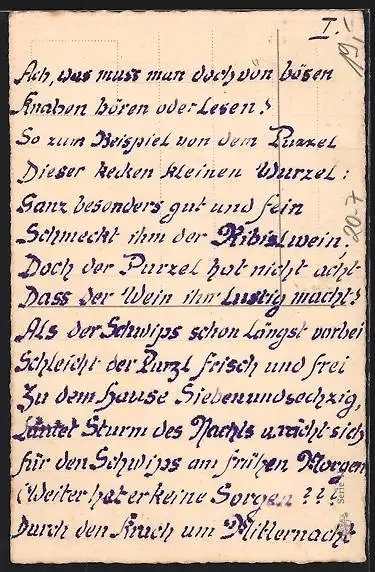 I.
19,
Ach, was muss man doch von bösen
Knaben hören oder lesen!
So zum Beispiel von dem Purzel
Dieser kecken kleinen Wurzel:
Ganz besonders gut und fein
Schmeckt ihm der Ribislwein,
20-7
Doch der Purzel hat nicht acht
Dass der Wein ihn lustig macht!
Als der Schwips schon längst vorbei
Schleicht der Purzl frisch und frei
Zu dem Hause Siebenundsechzig,
Läutet Sturm des Nachts u. rächt sich
Für den Schwips am frühen Morgen
(Weiter hat er keine Sorgen???
Durch den Krach um Mitternacht